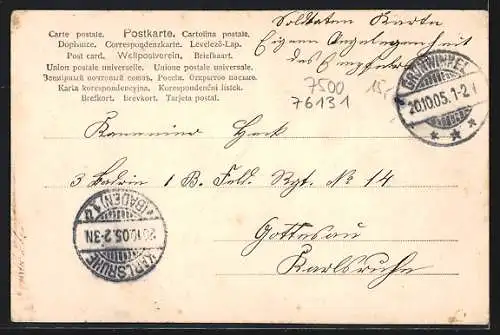 Carte postale. Postkarte. Cartolina postale.
Dopisnice. Correspondenzkarte. Levelező-Lap.
Post card. Weltpostverein. Briefkaart.
Union postale universelle. Unione postale universale.
Всемірный почтовый союзъ. Россія. Открытое письмо.
Karta korespondencyjna. Korespondenční lístek.
Brefkort. Brevkort. Tarjeta postal.
Soldaten Karte
Eigene Angelegenheit
des Empfängers
7500 15,-
76131
GRÜNWINKEL
20.10.05. 1-2 N
Kanonier Heck
3 Battrie 1 B. Feld. Rgt. No 14
Gottesau
Karlsruhe
KARLSRUHE (BADEN)
20.10.05. 2-3N